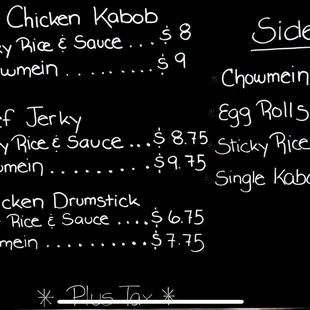 Chicken Kabob
ky Rice & Sauce ... $ 8
owmein .......... $ 9
ef Jerky
y Rice & Sauce ..... $ 8.75
umein ........... $ 9.75
icken Drumstick
Rice & Sauce .... $ 6.75
mein .......... $ 7.75
* Plus Tax *
Side
Chowmein
Egg Rolls
Sticky Rice
Single Kabo